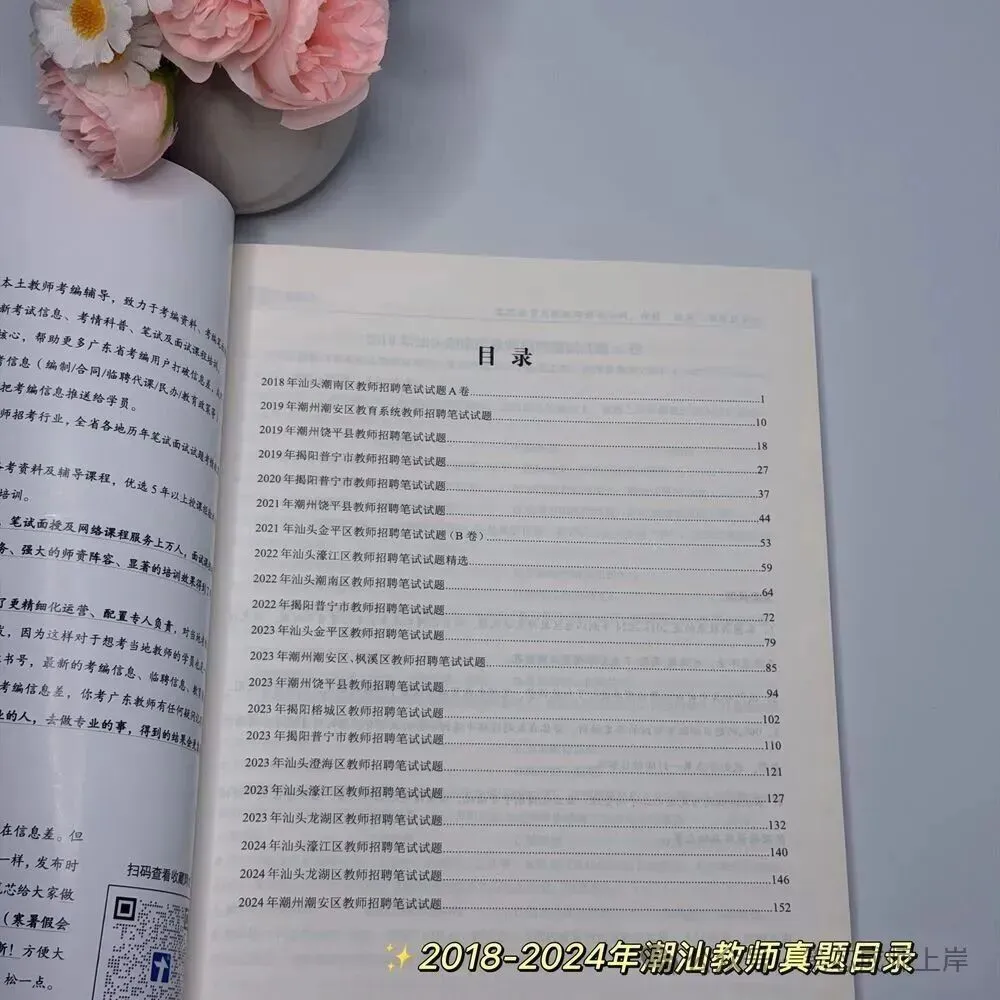 本土教师考编辅导，致力于考编资料、考编
新考试信息、考情科普、笔试及面试课程培训
核心，帮助更多广东省考编用户打破信息差，
考信息（编制/合同/临聘代课/民办/教育政策等
把考编信息推送给学员。
师招考行业，全省各地历年笔试面试试题考情
考资料及辅导课程，优选 5 年以上授课经验
培训。
笔试面授及网络课程服务上万人，面试
务、强大的师资阵容、显著的培训效果得到了
了更精细化运营、配置专人负责，对当地
，因为这样对于想考当地教师的学员
书号，最新的考编信息、临聘信息、教
考编信息差，你考广东教师有任何疑问
业的人，去做专业的事，得到的结果会
在信息差。但
一样，发布时
芯给大家做
（寒暑假会
新！方便大
松一点。
扫码查看收藏
目 录
2018 年汕头潮南区教师招聘笔试试题 A 卷 1
2019 年潮州潮安区教育系统教师招聘笔试试题 10
2019 年潮州饶平县教师招聘笔试试题 18
2019 年揭阳普宁市教师招聘笔试试题 27
2020 年揭阳普宁市教师招聘笔试试题 37
2021 年潮州饶平县教师招聘笔试试题 44
2021 年汕头金平区教师招聘笔试试题（B 卷） 53
2022 年汕头濠江区教师招聘笔试试题精选 59
2022 年汕头潮南区教师招聘笔试试题 64
2022 年揭阳普宁市教师招聘笔试试题 72
2023 年汕头金平区教师招聘笔试试题 79
2023 年潮州潮安区、枫溪区教师招聘笔试试题 85
2023 年潮州饶平县教师招聘笔试试题 94
2023 年揭阳榕城区教师招聘笔试试题 102
2023 年揭阳普宁市教师招聘笔试试题 110
2023 年汕头澄海区教师招聘笔试试题 121
2023 年汕头濠江区教师招聘笔试试题 127
2023 年汕头龙湖区教师招聘笔试试题 132
2024 年汕头濠江区教师招聘笔试试题 140
2024 年汕头龙湖区教师招聘笔试试题 146
2024 年潮州潮安区教师招聘笔试试题 152
2018-2024年潮汕教师真题目录
上岸